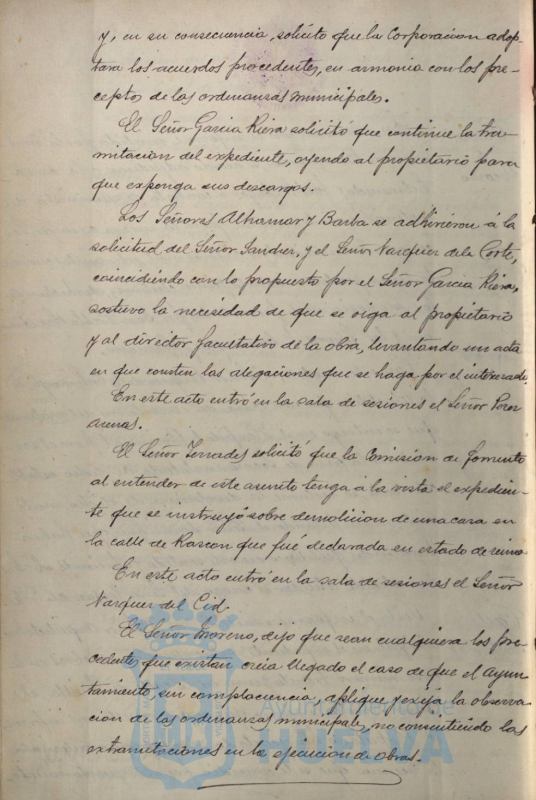 y, en su consecuencia, solicito que la Corporacion adop-
tara los acuerdos procedentes, en armonia con los pre-
ceptos de las ordenanzas municipales.
El Señor Garcia Riera solicitó que continue la tra-
mitacion del expediente, oyendo al propietario para
que exponga sus descargos.
Los Señores Alhamar y Barba se adhirieron á la
solicitud del Señor Sandrez, y el Señor Vazquez de la Corte,
coincidiendo con lo propuesto por el Señor Garcia Riera,
sostuvo la necesidad de que se oiga al propietario
y al director facultativo de la obra, levantando un acta
en que consten las alegaciones que se haga por el interesado.
En este acto entró en la sala de sesiones el Señor Perez
arenas.
El Señor Terrades solicitó que la Comision de fomento
al entender de este asunto tenga á la vista el expedien-
te que se instruyó sobre demolicion de una casa en
la calle de Rascon que fué declarada en estado de ruina.
En este acto entró en la sala de sesiones el Señor
Vazquez del Cid.
El Señor Moreno, dijo que sean cualquiera los pre-
cedentes que existan creia llegado el caso de que el Ayun-
tamiento, sin complacencia, aplique y exija la observa-
cion de las ordenanzas municipales, no consintiendo las
extramitaciones en la ejecucion de obras.
Ayuntamiento de
HUELVA